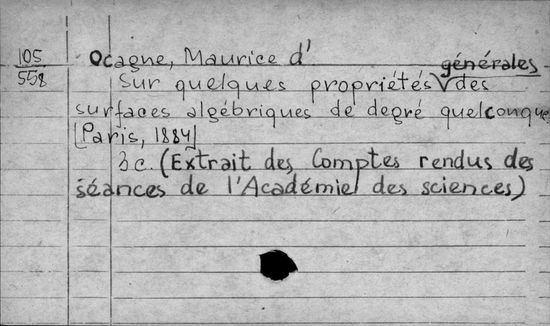 105
558
Ocagne, Maurice d'
générales
Sur quelques propriétés √ des
surfaces algébriques de degré quelconque
[Paris, 1884]
3 c. (Extrait des Comptes rendus des
séances de l'Académie des sciences)